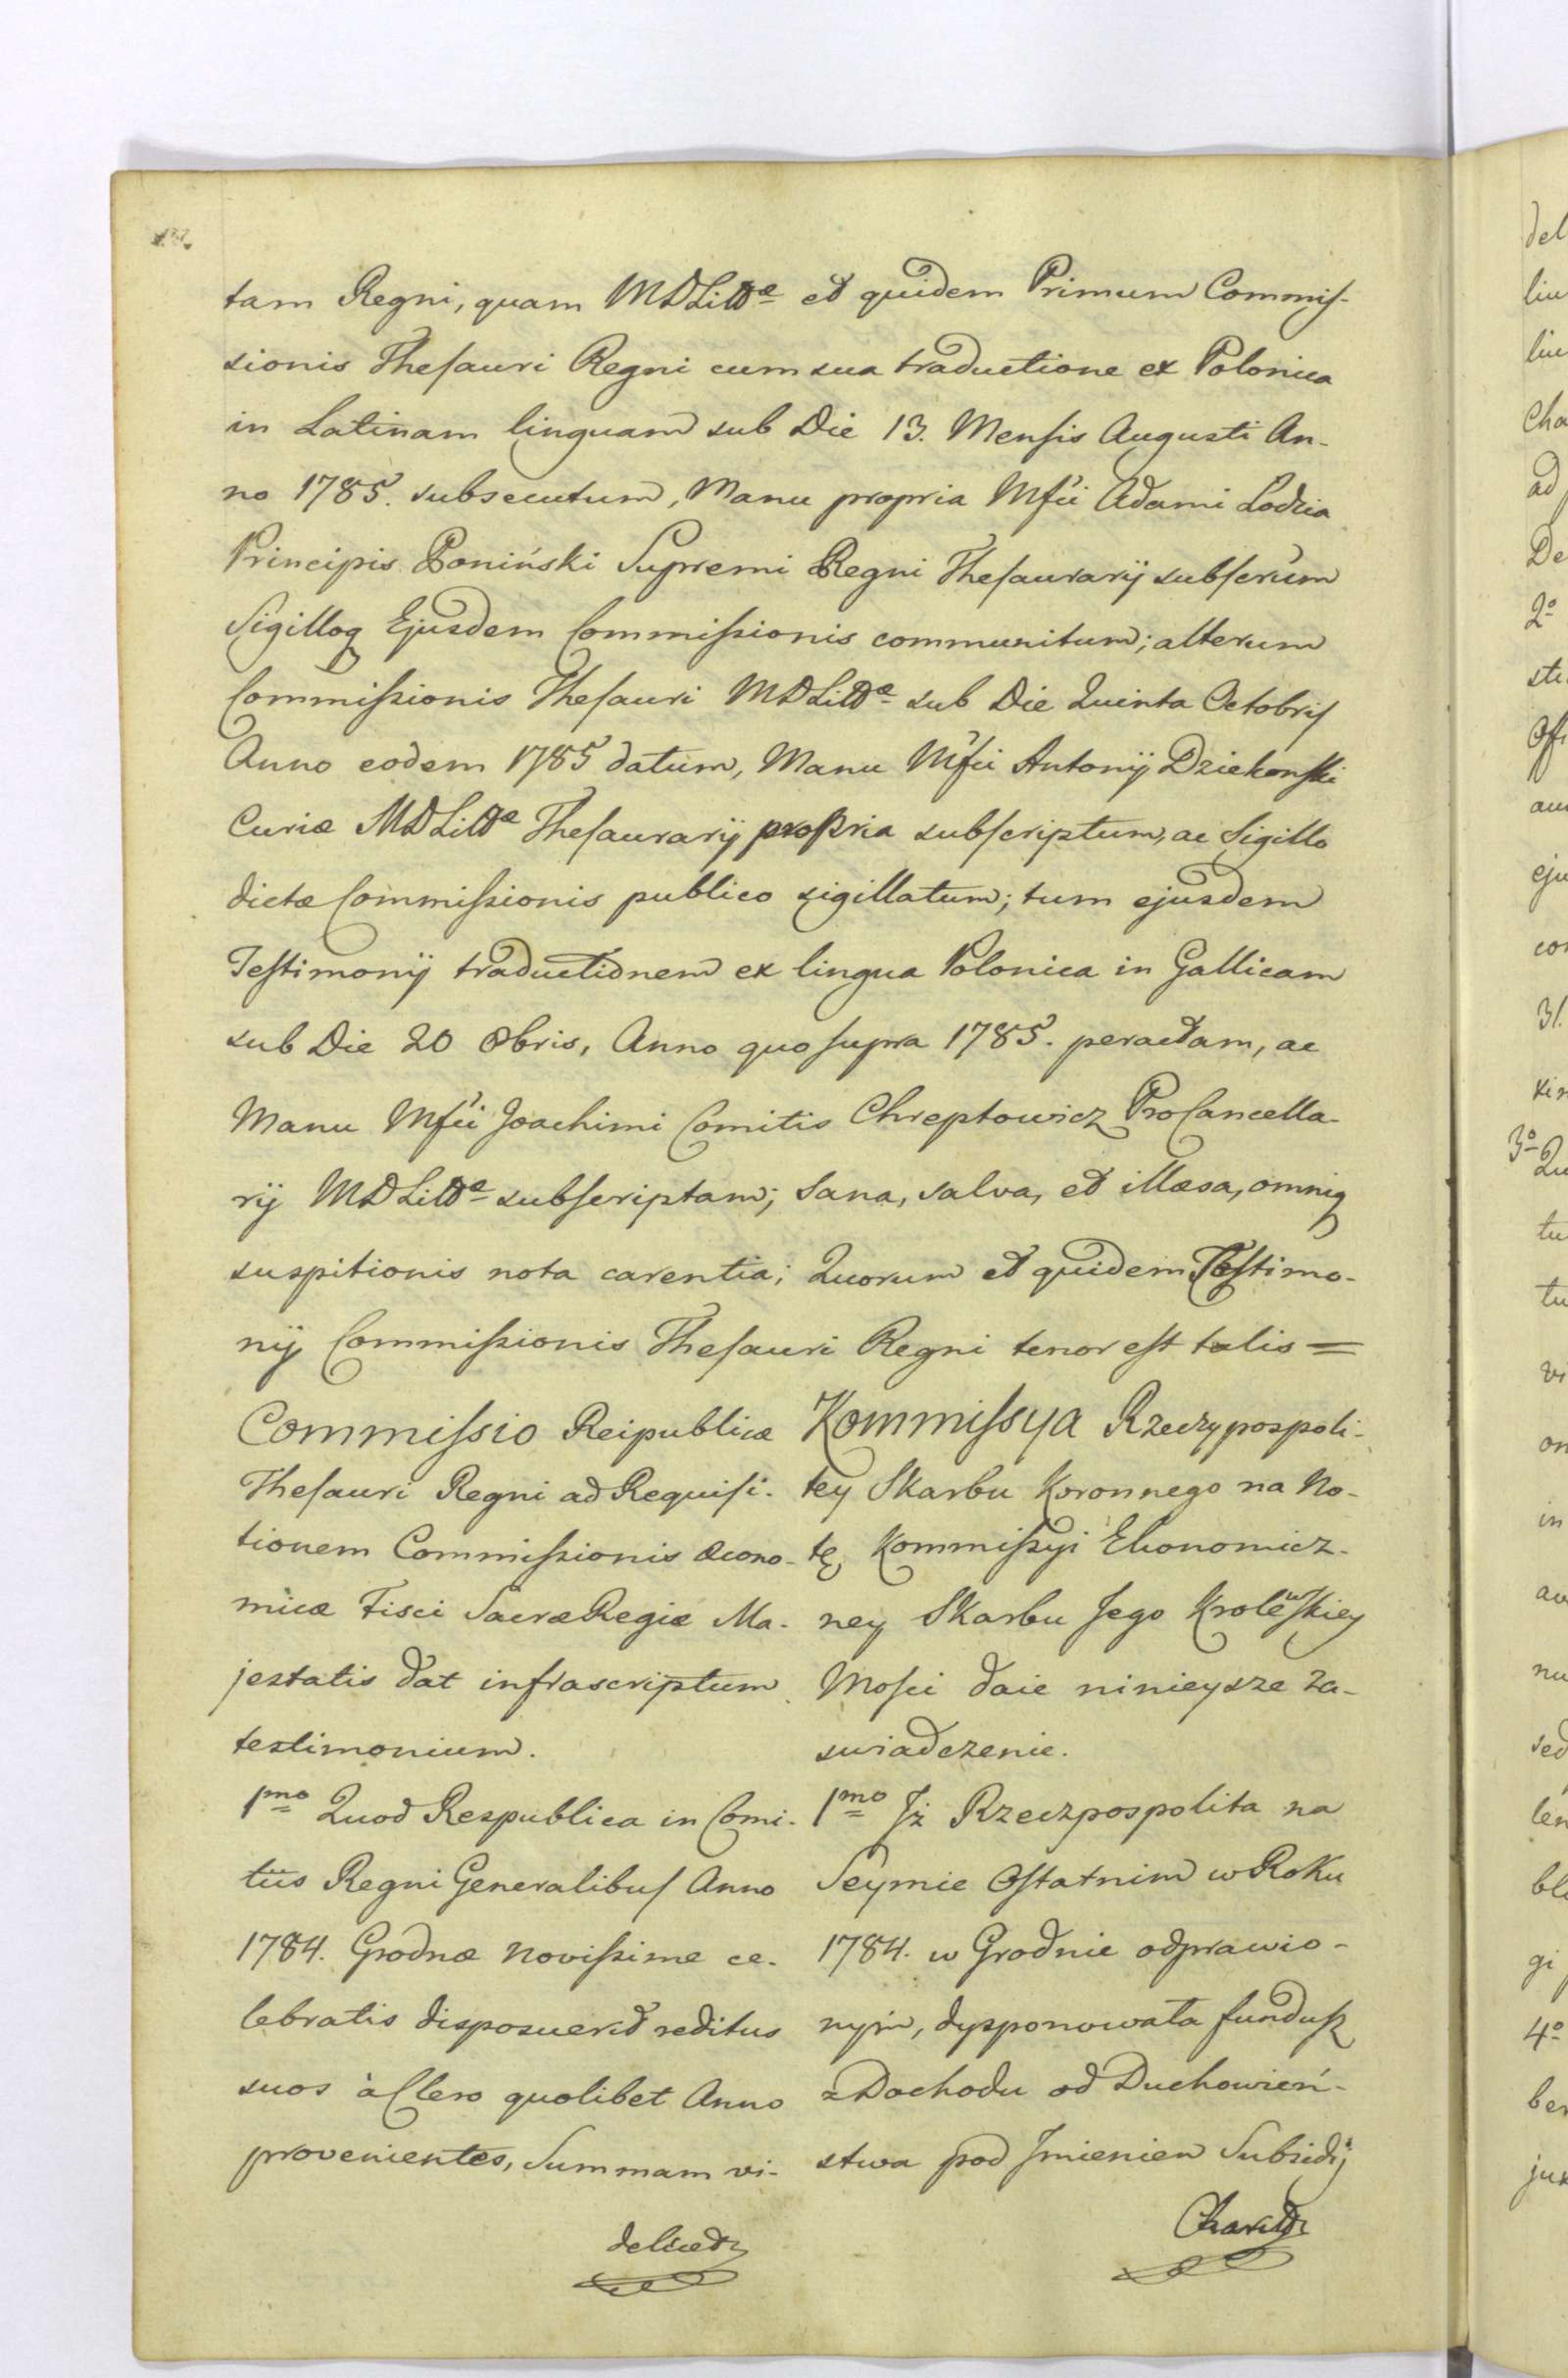 tam Regni, quam MDLittæ et quidem Primum Commis-
sionis Thesauri Regni cum sua traductione ex Polonica
in Latinam linguam sub Die 13. Mensis Augusti An-
no 1785. subsecutum, Manu propria Mfci Adami Lodzia
Principis Poniński Supremi Regni Thesaurarij subscrūm
Sigilloq Ejusdem Commissionis communitum; alterum
Commissionis Thesauri MDLittæ sub Die Quinta Octobris
Anno eodem 1785 datum, Manu Mfci Antonij Dziekonski
Curiæ MDLittæ Thesaurarij propria subscriptum, ac Sigillo
dictæ Commissionis publico sigillatum; tum ejusdem
Testimonij traductionem ex lingua Polonica in Gallicam
sub Die 20 8bris, Anno quo supra 1785. peractam, ac
Manu Mfci Joachimi Comitis Chreptowicz ProCancella-
rij MDLittæ subscriptam; Sana, salva, et illæsa, omniq
suspitionis nota carentia; Quorum et quidem Testimo-
nij Commissionis Thesauri Regni tenor est talis =
Commissio Reipublicæ
Thesauri Regni ad Requisi-
tionem Commissionis Œcono-
micæ Fisci Sacræ Regiæ Ma-
jestatis dat infrascriptum
testimonium.
1mo Quod Respublica in Comi-
tiis Regni Generalibus Anno
1784. Grodnæ novissime ce-
lebratis disposuerit reditus
suos à Clero quolibet Anno
provenientes, Summam vi-
Kommissya Rzeczypospoli-
tey Skarbu Koronnego na No-
tę Kommissyi Ekonomicz-
ney Skarbu Jego Krolewskiey
Mosci daie ninieysze za-
swiadczenie.
1mo Jż Rzeczpospolita na
Seymie Ostatnim w Roku
1784. w Grodnie odprawio-
nym, dysponowała fundusz
z Dochodu od Duchowień-
stwa pod Jmienien Subsidij